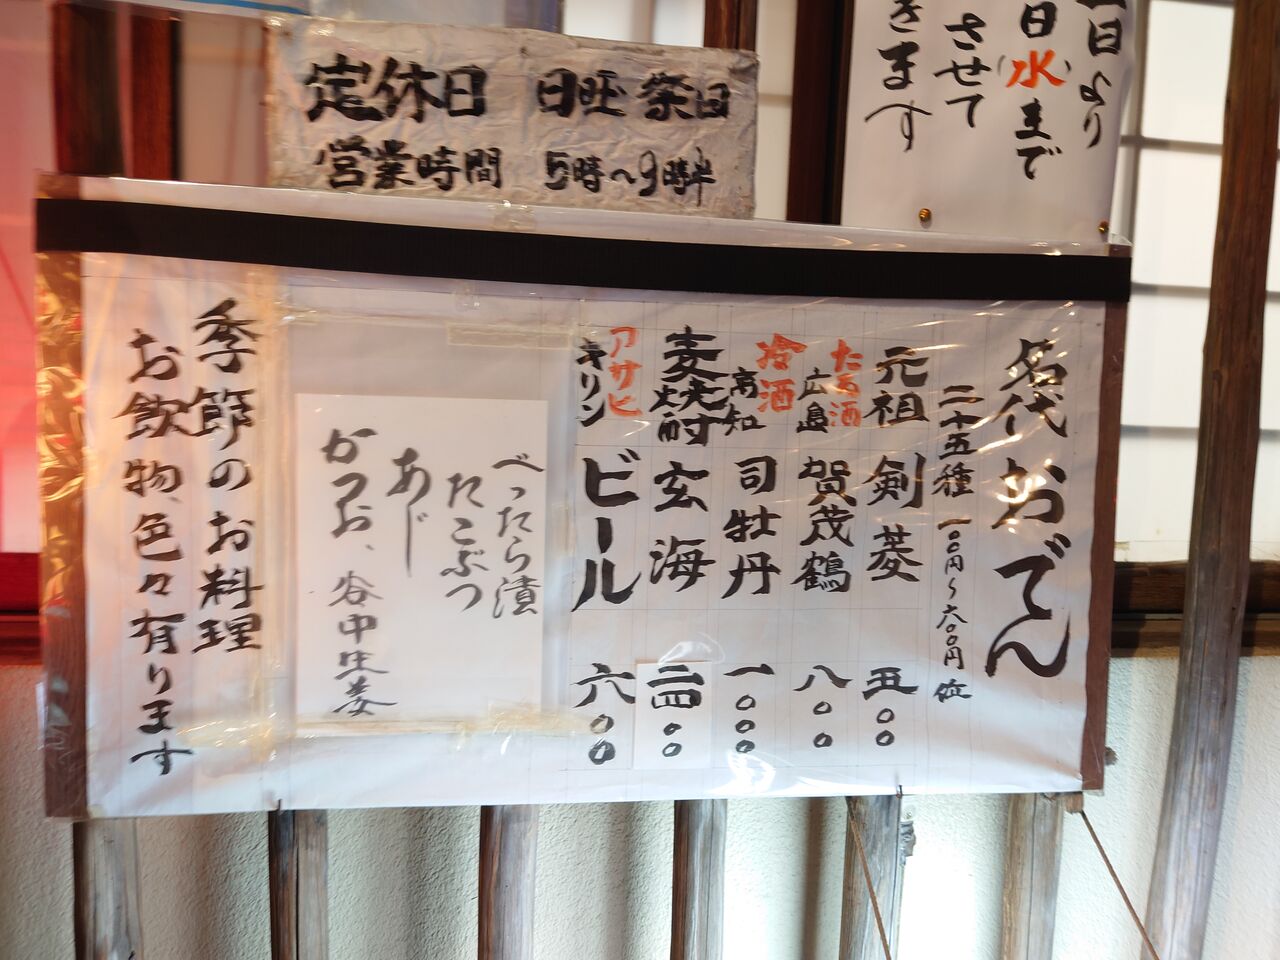 定休日 日旺祭日
営業時間 5時〜9時半
一日より
日(水)まで
させて
きます
名代おでん
二十五種 一〇〇円〜六〇〇円位
元祖 剣菱 五〇〇
たる酒
広島 賀茂鶴 八〇〇
冷酒
高知 司牡丹 一〇〇〇
麦焼酎 玄海 二四〇〇
アサヒ
キリン ビール 六〇〇
べったら漬
たこぶつ
あじ
かつお、谷中生姜
季節のお料理
お飲物、色々有ります